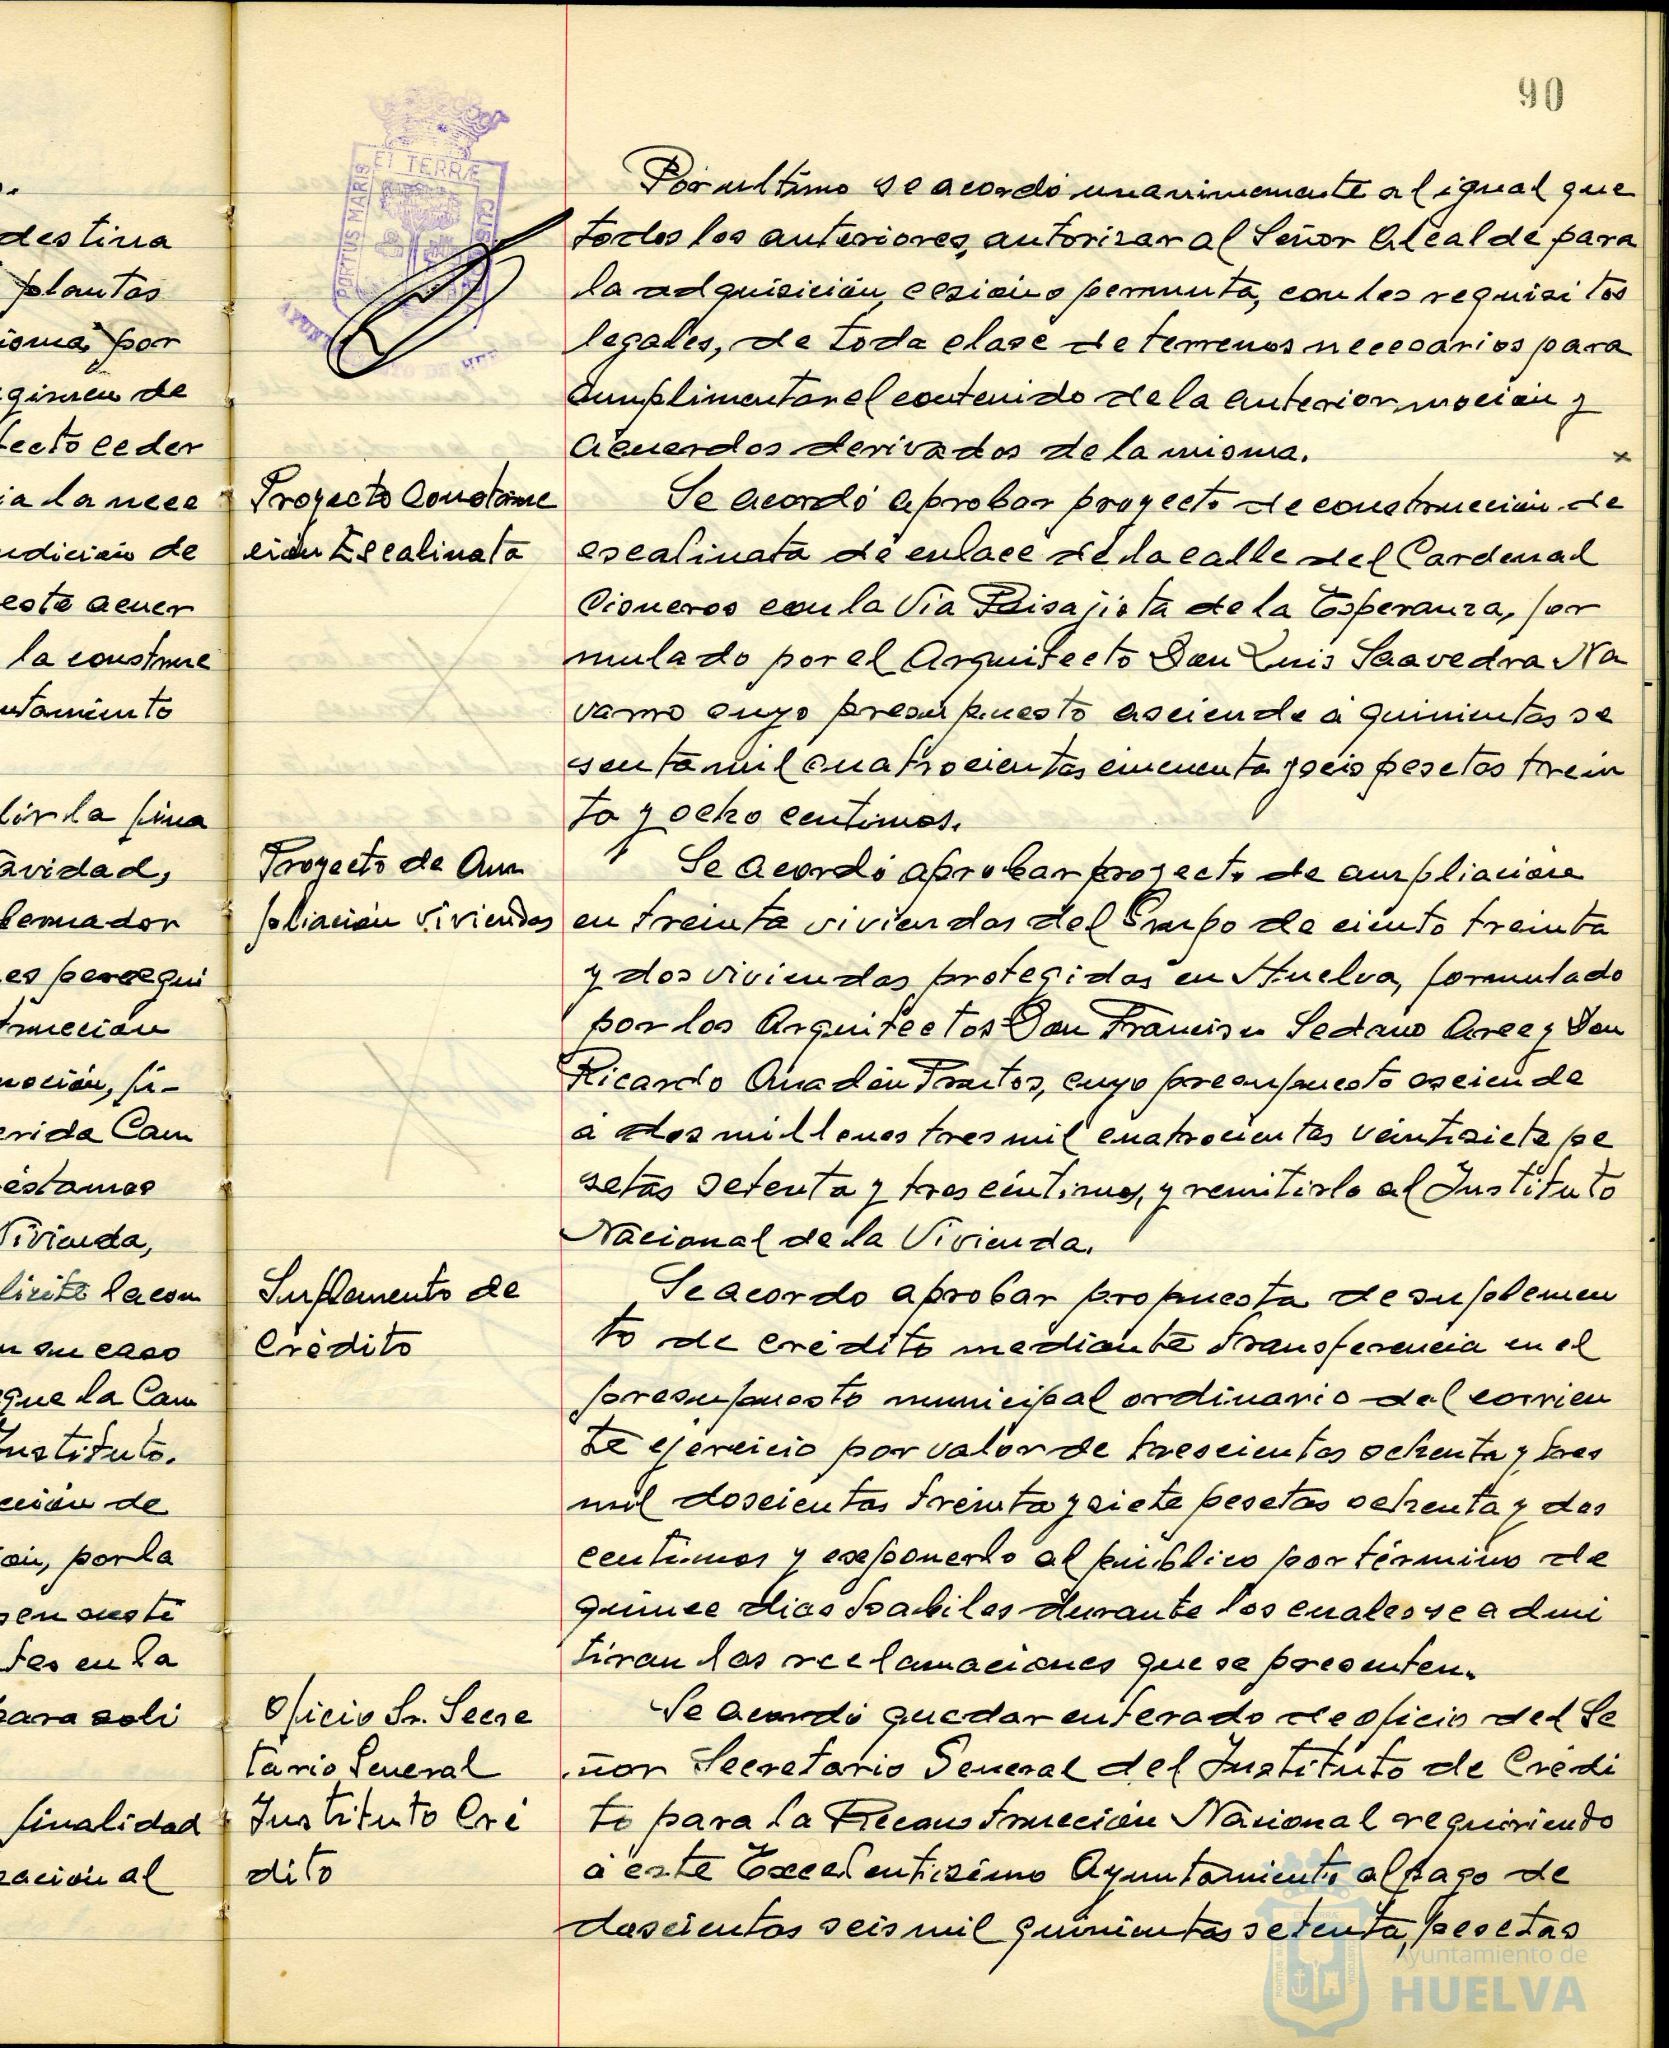 90
ET TERRÆ
PORTUS MARIS
CUSTO
AYUNTAMIENTO DE HUE
Por ultimo se acordó unanimemente al igual que
todos los anteriores, autorizar al Señor Alcalde para
la adquisición, cesión o permuta, con los requisitos
legales, de toda clase de terrenos necesarios para
cumplimentar el contenido de la anterior moción y
acuerdos derivados de la misma.
Proyecto Construc
ción Escalinata
Se acordó aprobar proyecto de construcción de
escalinata de enlace de la calle del Cardenal
Cisneros con la Via Paisajista de la Esperanza, for
mulado por el Arquitecto Don Luis Saavedra Na
varro cuyo presupuesto asciende á quinientas se
senta mil cuatrocientas cincuenta y seis pesetas trein
ta y ocho centimos.
Proyecto de Am
pliación viviendas
Se acordó aprobar proyecto de ampliación
en treinta viviendas del Grupo de ciento treinta
y dos viviendas protegidas en Huelva, formulado
por los Arquitectos Don Francisco Sedano Arce y Don
Ricardo Anadón Frutos, cuyo presupuesto asciende
á dos millones tres mil cuatrocientas veintisiete pe
setas setenta y tres céntimos, y remitirlo al Instituto
Nacional de la Vivienda.
Suplemento de
Crédito
Se acordo aprobar propuesta de suplemen
to de crédito mediante transferencia en el
presupuesto municipal ordinario del corrien
te ejercicio por valor de trescientas ochenta y tres
mil doscientas treinta y siete pesetas ochenta y dos
centimos y exponerlo al público por término de
quince dias habiles durante los cuales se admi
tiran las reclamaciones que se presenten.
Oficio Sr. Secre
tario General
Instituto Cré
dito
Se acordó quedar enterado de oficio del Se
ñor Secretario General del Instituto de Crédi
to para la Reconstrucción Nacional requiriendo
á este Excelentisimo Ayuntamiento al pago de
doscientas seis mil quinientas setenta, pesetas
destina
plantas
por
gimen de
fecto ceder
ia la nece
ndición de
este acuer
la construc
ntamiento
lir la fina
avidad,
bernador
es persegui
trucción
moción, fi-
erida Cam
éstamos
Vivienda,
licite la con
n su caso
que la Cam
Instituto.
cción de
ón, por la
sen susti
tes en la
para soli
finalidad
zación al
Ayuntamiento de
HUELVA